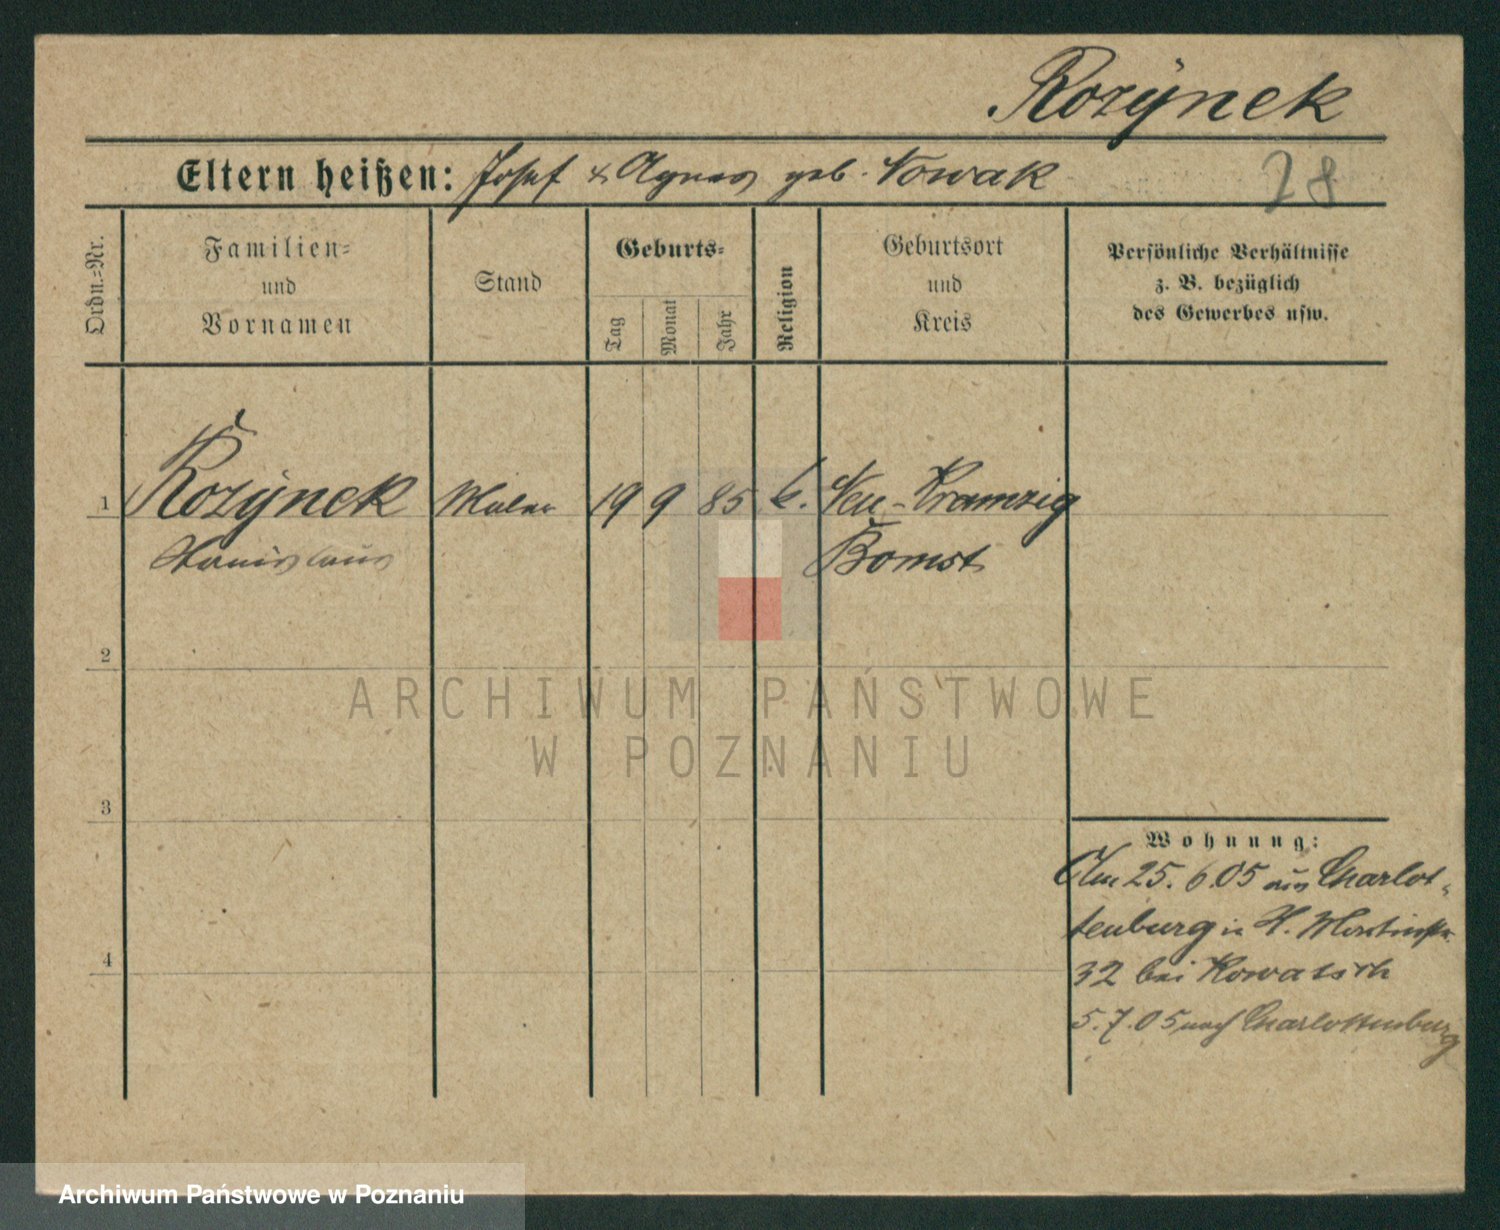 Rozynek
Eltern heißen: Josef & Agnes geb. Nowak
28
Ordn.-Nr.
Familien-
und
Vornamen
Stand
Geburts-
Tag
Monat
Jahr
Religion
Geburtsort
und
Kreis
Persönliche Verhältnisse
z. B. bezüglich
des Gewerbes usw.
1 Rozynek Maler 19 9 85 k. Neu-Kramzig
Stanislaus Bomst
2
ARCHIWUM PAŃSTWOWE
W POZNANIU
3
Wohnung:
Am 25.6.05 aus Charlot-
tenburg in St. Martinstr.
4
32 bei Kowatsch
5.7.05 nach Charlottenburg
Archiwum Państwowe w Poznaniu